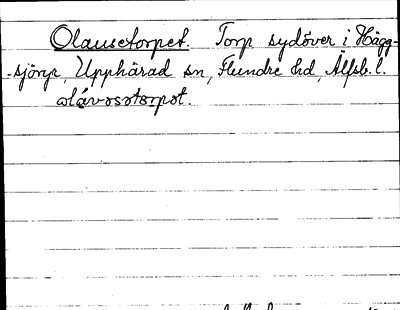 Olausetorpet. Torp sydöver i Hägg-
-sjöryr, Upphärad sn, Flundre hd, Älfsb. l.
olávsstorpst.